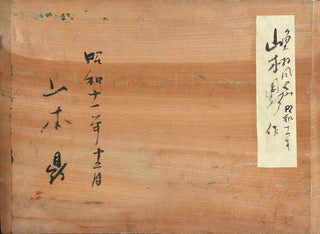 昭和十一年
山本鼎 作
昭和十一年十二月
山本鼎